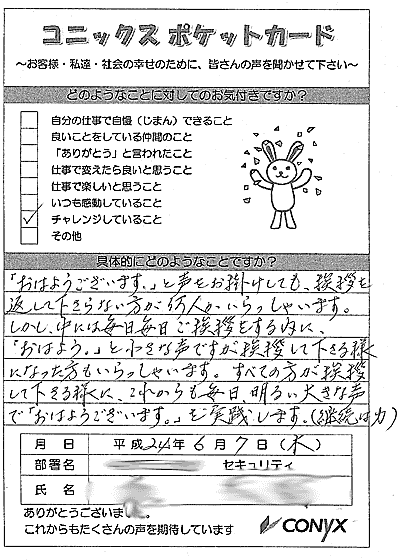 コニックス ポケットカード
～お客様・私達・社会の幸せのために、皆さんの声を聞かせて下さい～
どのようなことに対してのお気付きですか？
自分の仕事で自慢（じまん）できること
良いことをしている仲間のこと
「ありがとう」と言われたこと
仕事で変えたら良いと思うこと
仕事で楽しいと思うこと
いつも感動していること
✓ チャレンジしていること
その他
具体的にどのようなことですか？
「おはようございます。」と声をお掛けしても、挨拶を
返して下さらない方が何人かいらっしゃいます。
しかし、中には毎日毎日ご挨拶をする内に、
「おはよう。」と小さな声ですが挨拶して下さる様
になった方もいらっしゃいます。すべての方が挨拶
して下さる様に、これからも毎日、明るい大きな声
で「おはようございます。」を実践します。(継続は力)
月 日 平成24年 6月 7日 (木)
部署名 セキュリティ
氏 名
ありがとうございま
これからもたくさんの声を期待しています
CONYX